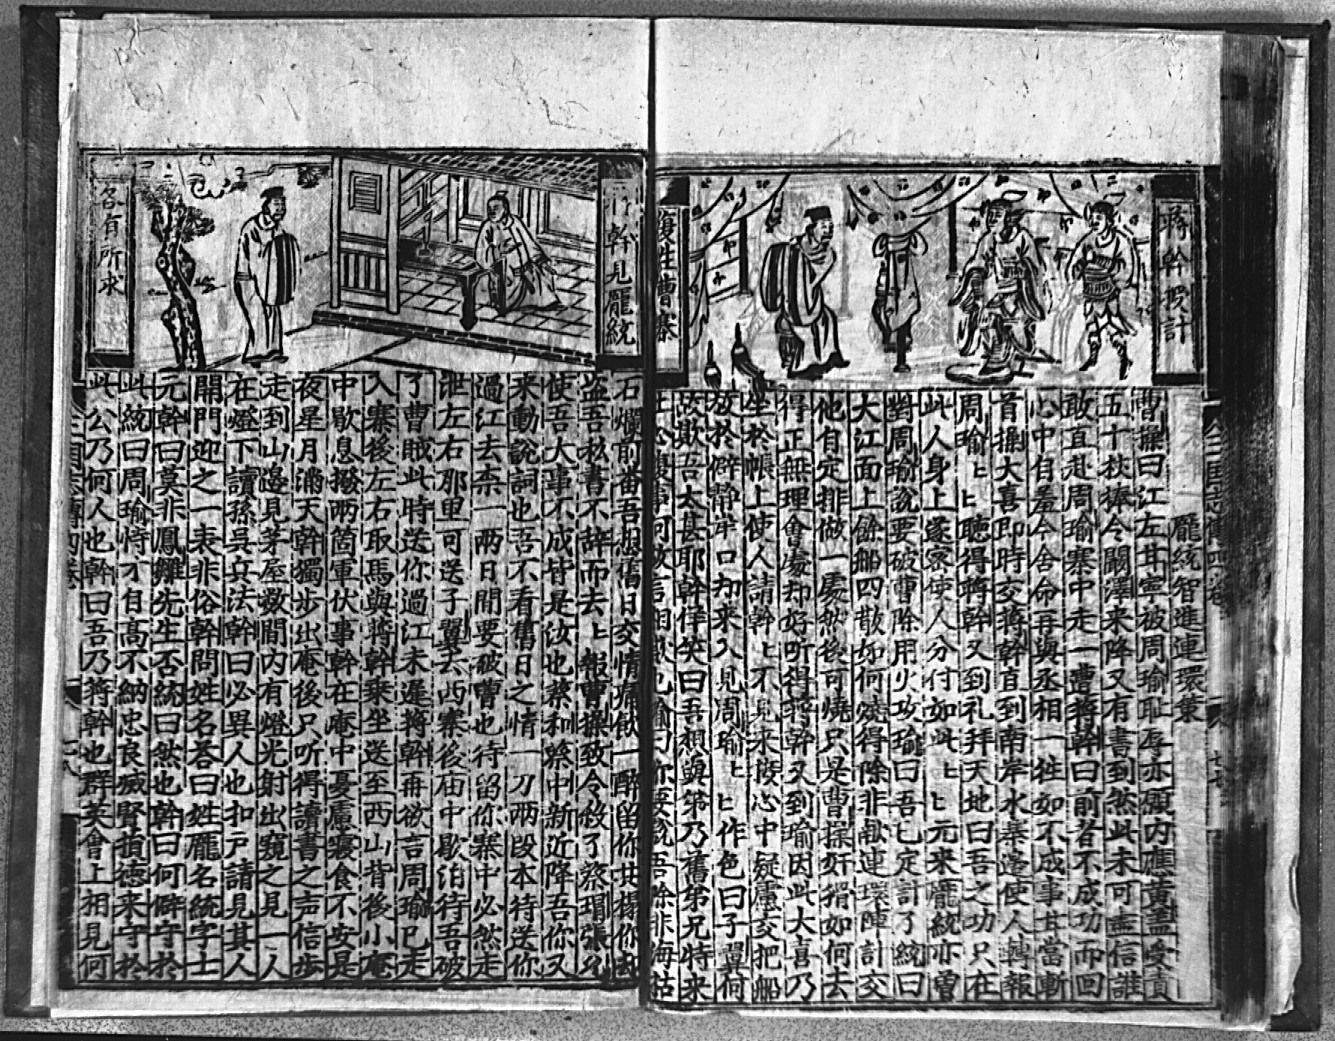 蔣幹獻計
復往曹寨
龐統智進連環策
曹操曰江左甘寧被周瑜耻辱亦願內應黃盖受責
五十杖捧令闞澤来降又有書到然此未可盡信誰
敢直赴周瑜寨中走一遭蔣幹曰前者不成功而回
心中自羞今舍命再與丞相一往如不成事甘當斬
首操大喜即時交蔣幹直到南岸水寨邊使人轉報
周瑜上上聽得蔣幹又到礼拜天地曰吾之功只在
此人身上遂密使人分付如此上上元来龐統亦曾
對周瑜說要破曹除用火攻瑜曰吾已定計了統曰
大江面上餘船四散如何燒得除非献連環陣計交
他自定排做一處然後可燒只是曹操奸猾如何去
得正無理會處却好听得蔣幹又到瑜因此大喜乃
坐於帳上使人請幹上不見来接心中疑慮交把船
放於僻静岸口却来入見周瑜上上作色曰子翼何
故欺吾太甚耶幹佯笑曰吾想與弟乃舊弟兄特来
吐心腹事何故言相欺也瑜曰你要說吾除非海枯
幹見龐統
各有所求
石爛前番吾想舊日交情痛飲一醉留你共榻你却
盗吾私書不辞而去上報曹操致令殺了蔡瑁張允
使吾大事不成皆是汝也蔡和蔡中新近降吾你又
来動說詞也吾不看舊日之情一刀兩段本待送你
過江去柰一兩日間要破曹也待留你寨中必然走
泄左右那里可送子翼去西寨後庙中歇泊待吾破
了曹賊此時送你過江未遲蔣幹再欲言周瑜已走
入寨後左右取馬與蔣幹乗坐送至西山背後小庵
中歇息撥兩箇軍伏事幹在庵中憂慮寢食不安是
夜星月滿天幹獨步出庵後只听得讀書之声信步
走到山邊見茅屋数間內有燈光射出窺之見一人
在燈下讀孫吳兵法幹曰必異人也扣戸請見其人
開門迎之一表非俗幹問姓名荅曰姓龐名統字士
元幹曰莫非鳳雛先生否統曰然也幹曰何僻守於
此統曰周瑜恃才自髙不納忠良㓕賢損德来守於
此公乃何人也幹曰吾乃蔣幹也群英會上相見何